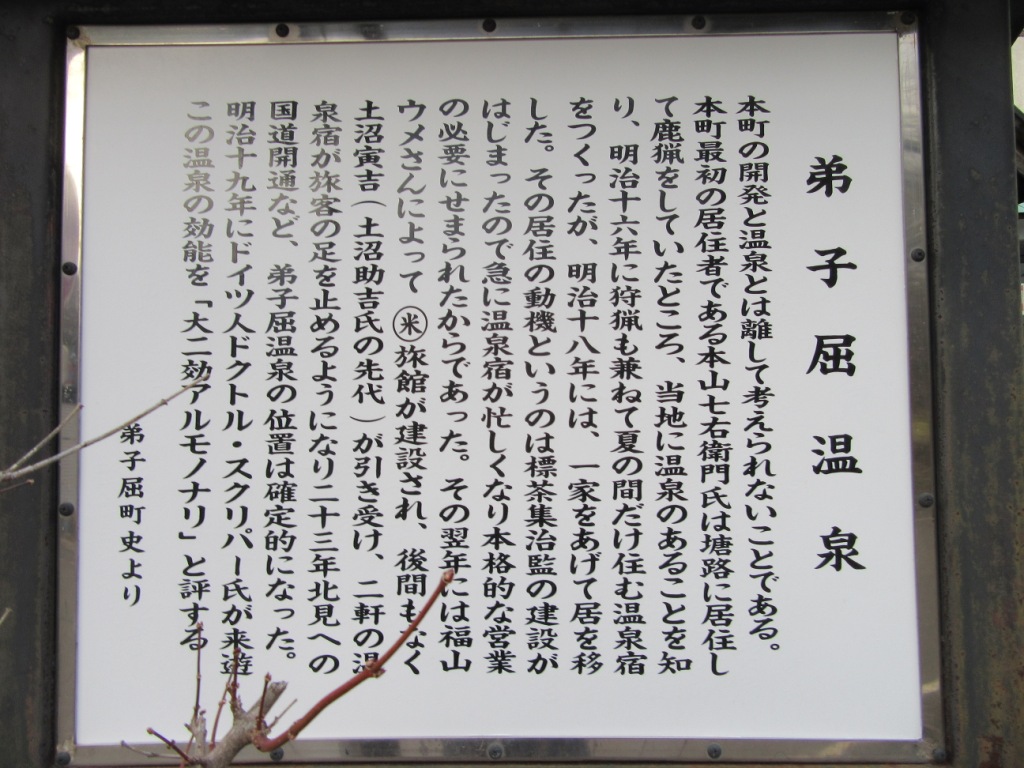 弟子屈温泉
本町の開発と温泉とは離して考えられないことである。
本町最初の居住者である本山七右衛門氏は塘路に居住し
て鹿猟をしていたところ、当地に温泉のあることを知
り、明治十六年に狩猟も兼ねて夏の間だけ住む温泉宿
をつくったが、明治十八年には、一家をあげて居を移
した。その居住の動機というのは標茶集治監の建設が
はじまったので急に温泉宿が忙しくなり本格的な営業
の必要にせまられたからであった。その翌年には福山
ウメさんによって㊍旅館が建設され、後間もなく
土沼寅吉(土沼助吉氏の先代)が引き受け、二軒の温
泉宿が旅客の足を止めるようになり二十三年北見への
国道開通など、弟子屈温泉の位置は確定的になった。
明治十九年にドイツ人ドクトル・スクリパー氏が来遊
この温泉の効能を「大二効アルモノナリ」と評する
弟子屈町史より